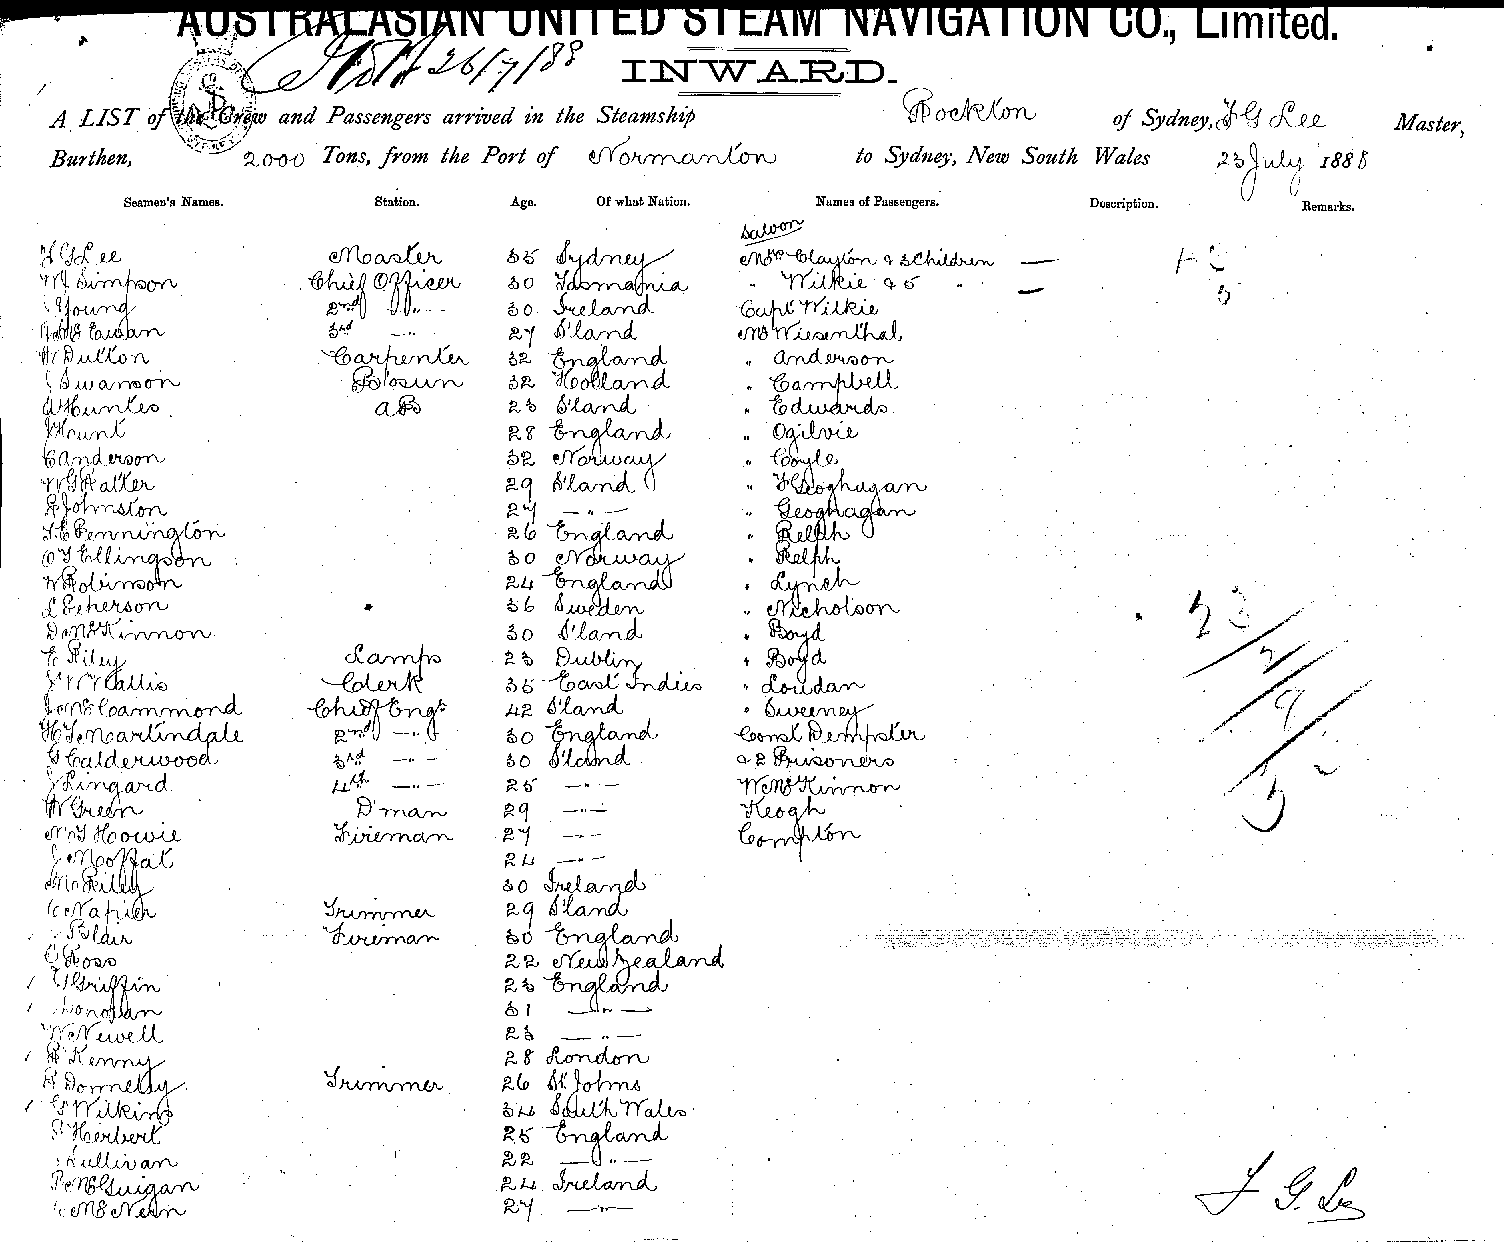 AUSTRALASIAN UNITED STEAM NAVIGATION CO., Limited.
26/7/88
INWARD.
A LIST of the Crew and Passengers arrived in the Steamship Rockton of Sydney, F G Lee Master,
Burthen, 2000 Tons, from the Port of Normanton to Sydney, New South Wales 23 July 1888
Seamen's Names. Station. Age. Of what Nation. Names of Passengers. Description. Remarks.
Saloon
F G Lee Master 35 Sydney Mrs Clayton & 3 Children —
W J Simpson Chief Officer 30 Tasmania " Wilkie & 5 " —
Young 2nd " 30 Ireland Capt Wilkie
McEwan 3rd —"— 27 S'land Mr Wiesenthal
W Dutton Carpenter 32 England " Anderson
J Swanson Bo'sun 32 Holland " Campbell
A Hunter AB 23 S'land " Edwards
J Hunt 28 England " Ogilvie
C Anderson 32 Norway " Coyle
W G Walker 29 S'land " F Geoghagan
R Johnston 27 —"— " Geoghagan
T. E Pennington 26 England " Relph
O J Ellingson 30 Norway " Relph
W Robinson 24 England " Lynch
36 Sweden " Nicholson
D McKinnon 30 S'land " Boyd
E Riley Lamps 23 Dublin " Boyd
J W Wallis Clerk 35 East Indies " Loudan
J McCammond Chief Engr 42 S'land " Sweeney
H T Martindale 2nd —"— 30 England Const Dempster
G Calderwood 3rd —"— 30 S'land & 2 Prisoners
J Lingard 4th —"— 25 —"— W McKinnon
W Green D'man 29 —"— Keogh
W J Howie Fireman 27 —"— Compton
J Moffat 24 —"—
M Reilly 30 Ireland
C Napier Trimmer 29 S'land
Blair Fireman 30 England
C Ross 22 New Zealand
J Griffin 23 England
Donovan 31 —"—
W Newell 23 —"—
P Kenny 28 London
P Donnelly Trimmer 26 St Johns
G Wilkins 34 South Wales
Herbert 25 England
Sullivan 22 —"—
P McGuigan 24 Ireland
McNern 27 —"—
F G Lee